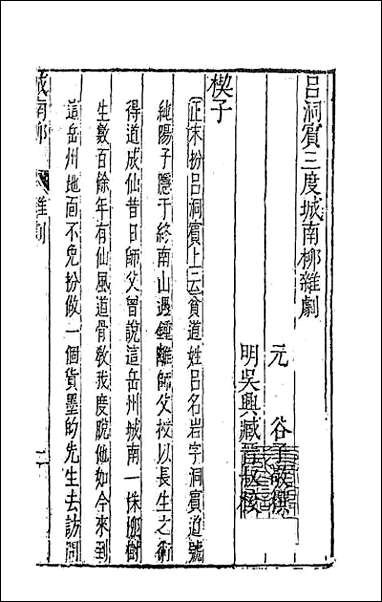 呂洞賓三度城南柳雜劇
元　谷子敬撰
明吳興臧晉叔校
楔子
正末扮呂洞賓上云貧道姓呂名岩字洞賓道號
純陽子隱于終南山遇鍾離師父授以長生之術
得道成仙昔日師父曾說這岳州城南一株柳樹
生數百餘年有仙風道骨敎我度脫他如今來到
這岳州地面不免扮做一個貨墨的先生去訪問
城南柳　雜劇　一